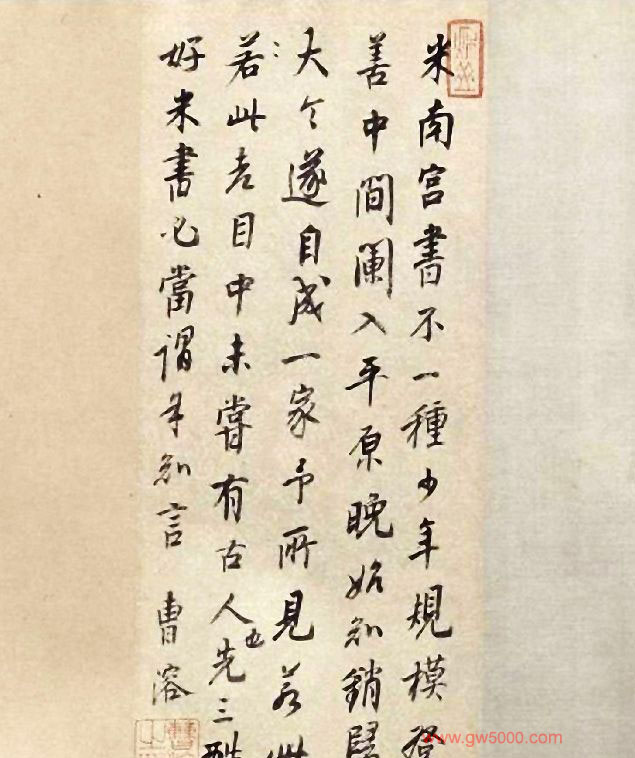 米南宮書不一種少年規模登
善中間闌入平原晚始知銷歸
大令遂自成一家予所見若此
若此者目中未嘗有古人也先三酷
好米書必當謂予知言 曹溶
www.gw5000.com